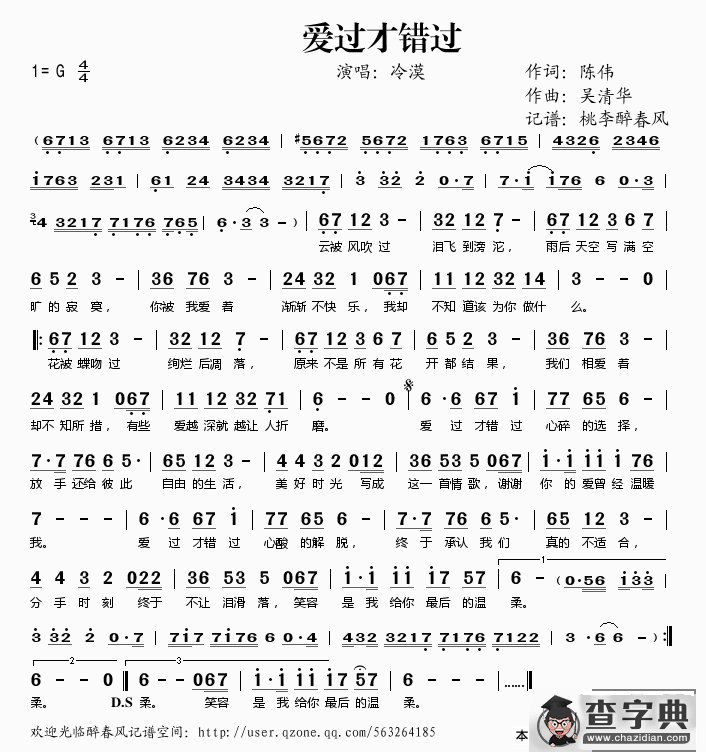 爱过才错过
1=G 4/4
演唱：冷漠
作词：陈伟
作曲：吴清华
记谱：桃李醉春风
( 6713 6713 6234 6234 | #5672 5672 1763 6715 | 4326 2346
1763 231 | 61 24 3434 3217 | 3 32 2 0·7 | 7·1 176 6 0·3 |
3 4 3217 7176 765 | 6·3 3 - ) | 67 12 3 - | 32 12 7 - | 67 12 3 6 7 |
云被 风吹 过 泪飞 到滂 沱， 雨后 天空 写 满 空
6 5 2 3 - | 36 76 3 - | 24 32 1 067 | 11 12 32 14 | 3 - - 0 |
旷 的 寂 寞， 你被 我爱 着 渐渐 不快 乐， 我却 不知 道该 为你 做什 么。
‖: 67 12 3 - | 32 12 7 - | 67 12 3 6 7 | 6 5 2 3 - | 36 76 3 - |
花被 蝶吻 过 绚烂 后凋 落， 原来 不是 所 有 花 开 都 结 果， 我们 相爱 着
24 32 1 067 | 11 12 32 71 | 6 - - 0 | 6·6 67 1 | 77 65 6 - |
却不 知所 措， 有些 爱越 深就 越让 人折 磨。 爱 过 才错 过 心碎 的选 择，
7·7 76 6 5· | 65 12 3 - | 4 4 3 2 012 | 36 53 5 067 | 1·1 11 17 67 |
放 手 还给 彼 此 自由 的生 活， 美 好 时 光 写成 这一 首情 歌， 谢谢 你 的 爱曾 经 温暖
7 - - - | 6·6 67 1 | 77 65 6 - | 7·7 76 6 5· | 65 12 3 - |
我。 爱 过 才错 过 心酸 的解 脱， 终 于 承认 我 们 真的 不适 合，
4 4 3 2 022 | 36 53 5 067 | 1·1 11 17 57 | 1 6 - (0·56 133 |
分 手 时 刻 终于 不让 泪滑 落， 笑容 是 我 给你 最后 的温 柔。
3 32 2 0·7 | 717 7176 6 0·4 | 432 3217 7176 7122 | 3 ·6 6 - ) :‖
2 6 - - 0 ‖ 6 - - 067 | 1·1 11 17 57 | 6 - - - |……‖
柔。 D.S 柔。 笑容 是 我 给你 最后 的温 柔。
欢迎光临醉春风记谱空间：http://user.qzone.qq.com/563264185
本
查字典
www.chazidian.com